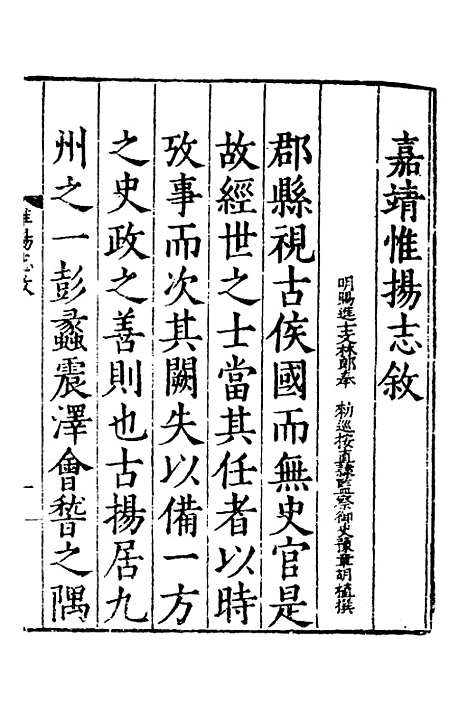 嘉靖惟揚志敘
明賜進士文林郎奉　勑巡按直隸監察御史豫章胡植撰
郡縣視古侯國而無史官是
故經世之士當其任者以時
攷事而次其闕失以備一方
之史政之善則也古揚居九
州之一彭蠡震澤會嵇之隅
惟揚志敘
一